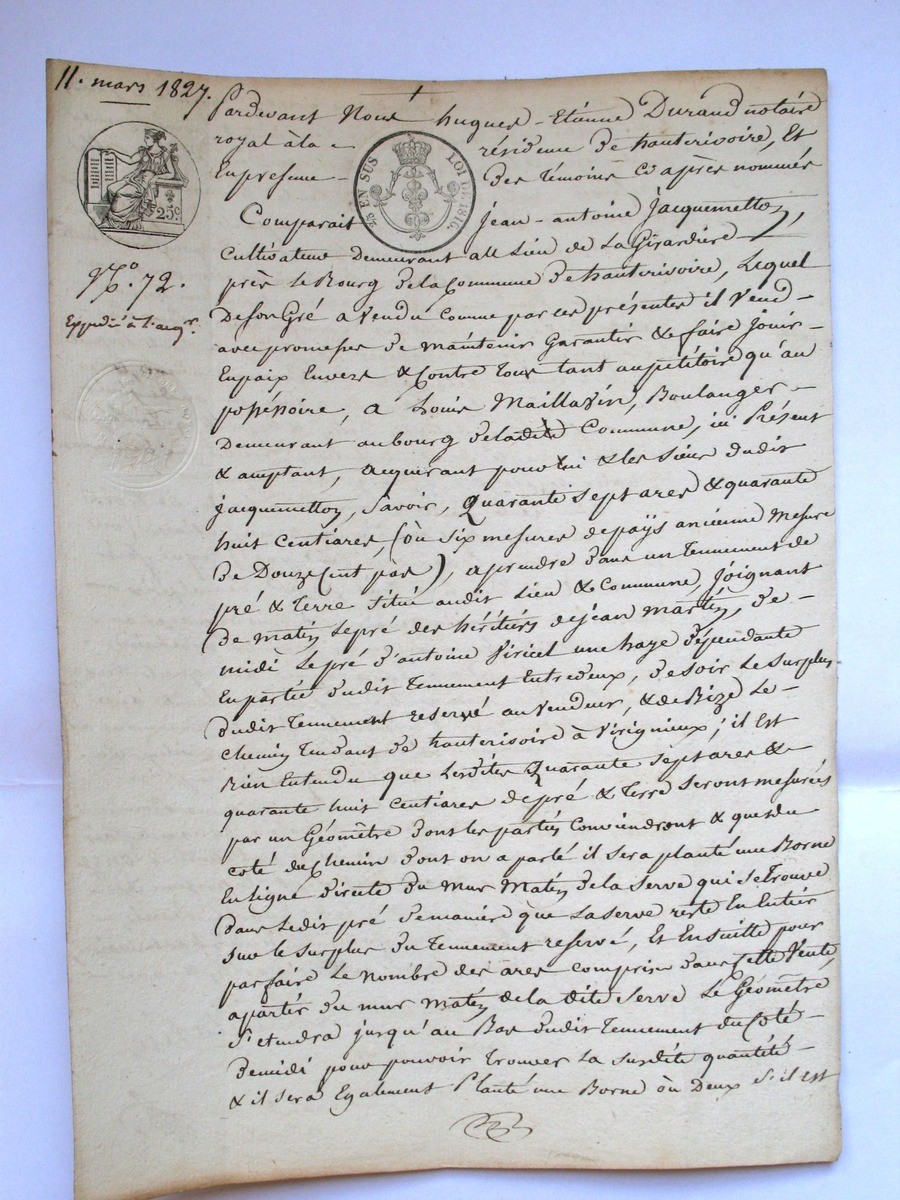 11. mars 1827.
25 EN SUS
LOI DE 1816.
25c.
N.o 72.
Expédié à l'acqr.
Pardevant Nous hugues - Etiénne Durand notaire
royal à la - résidence de hauterivoire, Et
En presence - des témoins cy après nommés
Comparait jean - antoine jacquemetton,
Cultivateur Demeurant au Lieu de La Girardière
près le Bourg de la Commune de hauterivoire, Lequel
De son Gré a Vendu Comme par ces présentes il Vend -
avec promesses de Maintenir Garantir & faire Jouir -
En paix Envers & Contre Tous tant au pétitoire qu'au
possessoire, a Louis Maillavin, Boulanger -
Demeurant au bourg de ladite Commune, ici Présent
& acceptant, acquerant pour lui & les siens dudit
jacquemetton, Savoir, Quarante Sept ares & quarante
huit Centiares, (où six mesures de pays anciénne Mesure
de Douze Cent pas), a prendre dans un Tennement de
pré & Terre situé audit Lieu & Commune, Joignant
de matin le pré des héritiers de jean Martin, de -
midi le pré d'antoine Viricel une haye dépendante
En partie dudit Tennement Entredeux, de soir Le surplus
dudit Tennement reservé au Vendeur, & de Bize Le -
chemin Tendant de hauterivoire à Virignieux; il Est
Bien Entendu que Lesdites Quarante Sept ares &
quarante huit Centiares de pré & Terre seront mesurées
par un Géomètre dont les parties Conviendront & que du
coté du Chemin dont on a parlé il sera planté une Borne
En ligne directe du mur Matin de la serve qui se Trouve
Dans Ledit pré de manière que La serve reste En Entier
sur le surplus du Tennement reservé, Et Ensuitte pour
parfaire Le nombre des ares compris dans Cette Vente,
a partir du mur Matin de la dite serve Le Géomètre
S'etendra jusqu'au Bas dudit Tennement du Coté -
de midi pour pouvoir Trouver La susdite quantité -
& il sera Egalement Planté une Borne où Deux S'il est